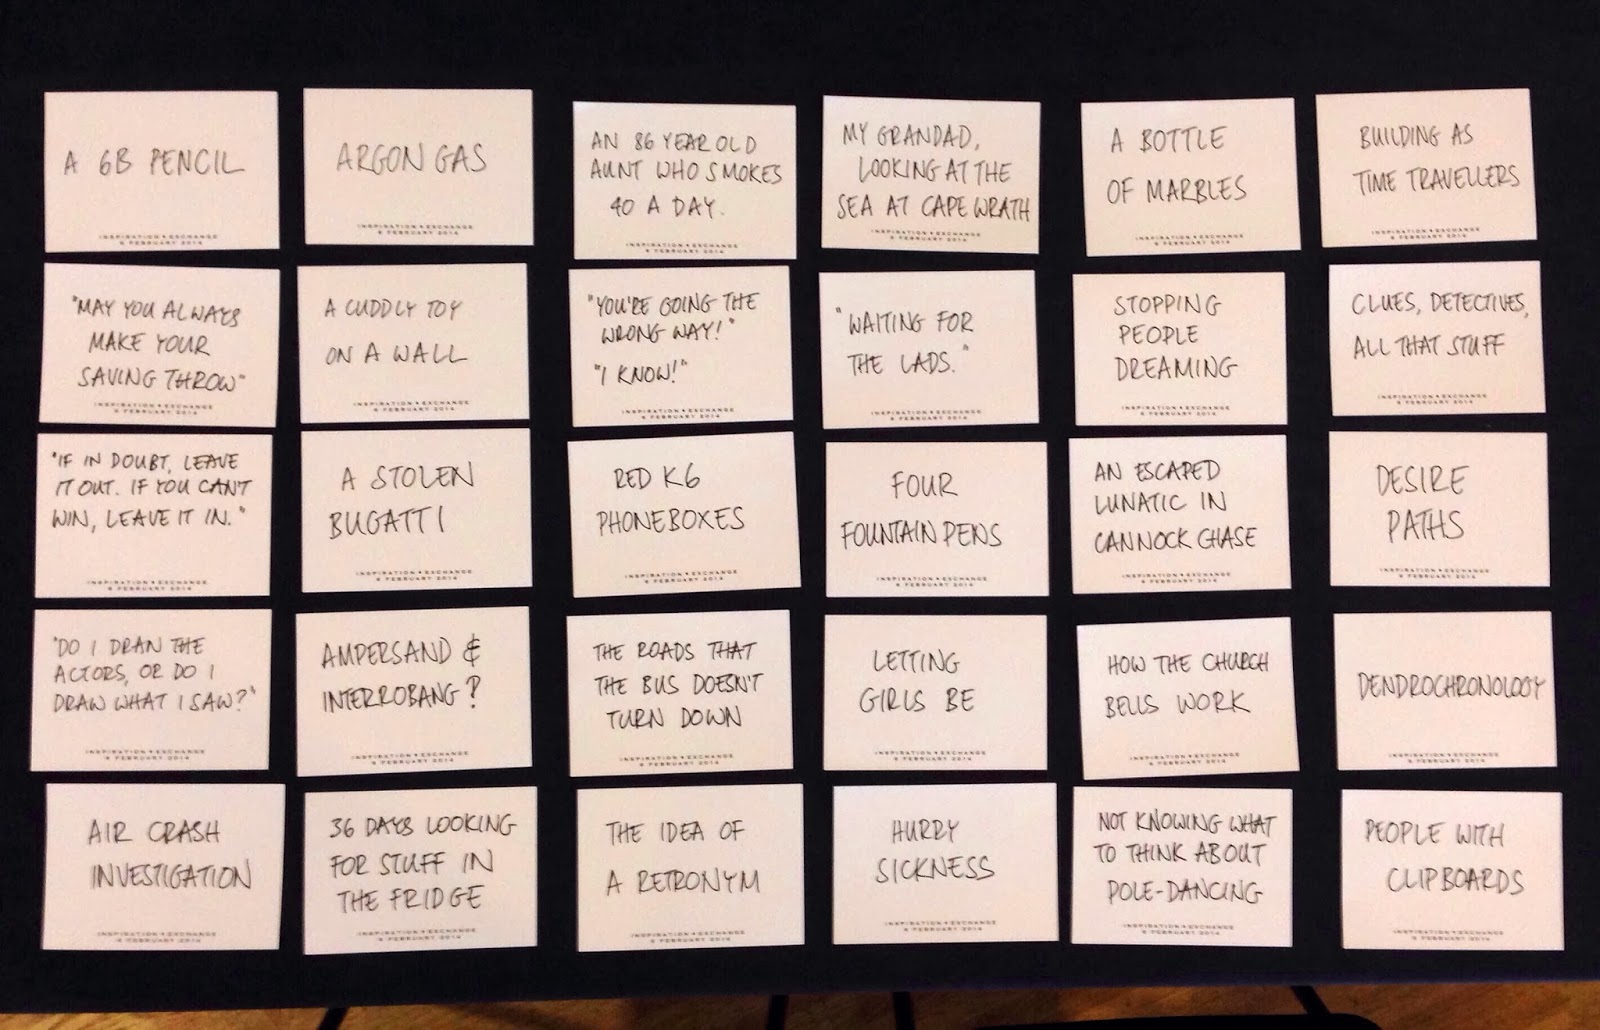 A 6B PENCIL
INSPIRATION • EXCHANGE
6 FEBRUARY 2014
ARGON GAS
INSPIRATION • EXCHANGE
6 FEBRUARY 2014
AN 86 YEAR OLD
AUNT WHO SMOKES
40 A DAY.
INSPIRATION • EXCHANGE
6 FEBRUARY 2014
MY GRANDAD,
LOOKING AT THE
SEA AT CAPE WRATH
INSPIRATION • EXCHANGE
6 FEBRUARY 2014
A BOTTLE
OF MARBLES
INSPIRATION • EXCHANGE
6 FEBRUARY 2014
BUILDING AS
TIME TRAVELLERS
INSPIRATION • EXCHANGE
6 FEBRUARY 2014
"MAY YOU ALWAYS
MAKE YOUR
SAVING THROW"
INSPIRATION • EXCHANGE
6 FEBRUARY 2014
A CUDDLY TOY
ON A WALL
INSPIRATION • EXCHANGE
6 FEBRUARY 2014
"YOU'RE GOING THE
WRONG WAY!"
"I KNOW!"
INSPIRATION • EXCHANGE
6 FEBRUARY 2014
"WAITING FOR
THE LADS."
INSPIRATION • EXCHANGE
6 FEBRUARY 2014
STOPPING
PEOPLE
DREAMING
INSPIRATION • EXCHANGE
6 FEBRUARY 2014
CLUES, DETECTIVES,
ALL THAT STUFF
INSPIRATION • EXCHANGE
6 FEBRUARY 2014
"IF IN DOUBT, LEAVE
IT OUT. IF YOU CAN'T
WIN, LEAVE IT IN."
INSPIRATION • EXCHANGE
6 FEBRUARY 2014
A STOLEN
BUGATTI
INSPIRATION • EXCHANGE
6 FEBRUARY 2014
RED K6
PHONEBOXES
INSPIRATION • EXCHANGE
6 FEBRUARY 2014
FOUR
FOUNTAIN PENS
INSPIRATION • EXCHANGE
6 FEBRUARY 2014
AN ESCAPED
LUNATIC IN
CANNOCK CHASE
INSPIRATION • EXCHANGE
6 FEBRUARY 2014
DESIRE
PATHS
INSPIRATION • EXCHANGE
6 FEBRUARY 2014
"DO I DRAW THE
ACTORS, OR DO I
DRAW WHAT I SAW?"
INSPIRATION • EXCHANGE
6 FEBRUARY 2014
AMPERSAND &
INTERROBANG‽
INSPIRATION • EXCHANGE
6 FEBRUARY 2014
THE ROADS THAT
THE BUS DOESN'T
TURN DOWN
INSPIRATION • EXCHANGE
6 FEBRUARY 2014
LETTING
GIRLS BE
INSPIRATION • EXCHANGE
6 FEBRUARY 2014
HOW THE CHURCH
BELLS WORK
INSPIRATION • EXCHANGE
6 FEBRUARY 2014
DENDROCHRONOLOGY
INSPIRATION • EXCHANGE
6 FEBRUARY 2014
AIR CRASH
INVESTIGATION
INSPIRATION • EXCHANGE
6 FEBRUARY 2014
36 DAYS LOOKING
FOR STUFF IN
THE FRIDGE
INSPIRATION • EXCHANGE
6 FEBRUARY 2014
THE IDEA OF
A RETRONYM
INSPIRATION • EXCHANGE
6 FEBRUARY 2014
HURRY
SICKNESS
INSPIRATION • EXCHANGE
6 FEBRUARY 2014
NOT KNOWING WHAT
TO THINK ABOUT
POLE-DANCING
INSPIRATION • EXCHANGE
6 FEBRUARY 2014
PEOPLE WITH
CLIPBOARDS
INSPIRATION • EXCHANGE
6 FEBRUARY 2014